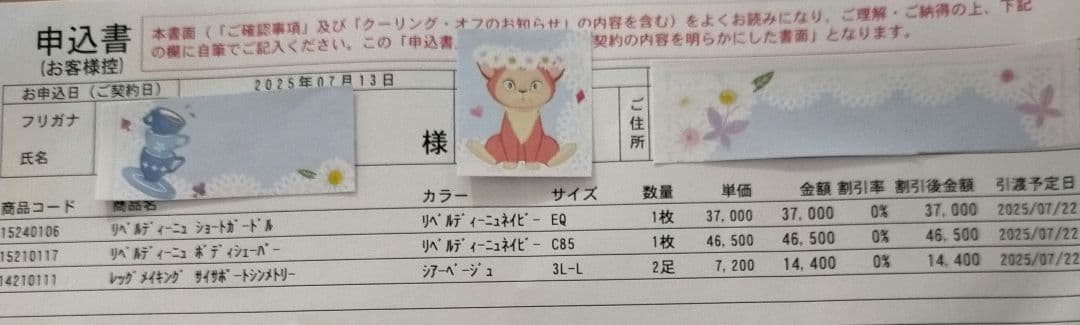 申込書
(お客様控)
本書面(「ご確認事項」及び「クーリング・オフのお知らせ」の内容を含む)をよくお読みになり、ご理解・ご納得の上、下記
の欄に自筆でご記入ください。この「申込書 契約の内容を明らかにした書面」となります。
お申込日(ご契約日) 2025年07月13日
フリガナ
氏名 様 ご住所
商品コード 商品名 カラー サイズ 数量 単価 金額 割引率 割引後金額 引渡予定日
15240106 リベルディーニュ ショートガードル リベルディーニュネイビー EQ 1枚 37,000 37,000 0% 37,000 2025/07/22
15210117 リベルディーニュ ボディシェーパー リベルディーニュネイビー C85 1枚 46,500 46,500 0% 46,500 2025/07/22
14210111 レッグメイキング サイサポートシンメトリー シアーベージュ 3L-L 2足 7,200 14,400 0% 14,400 2025/07/22